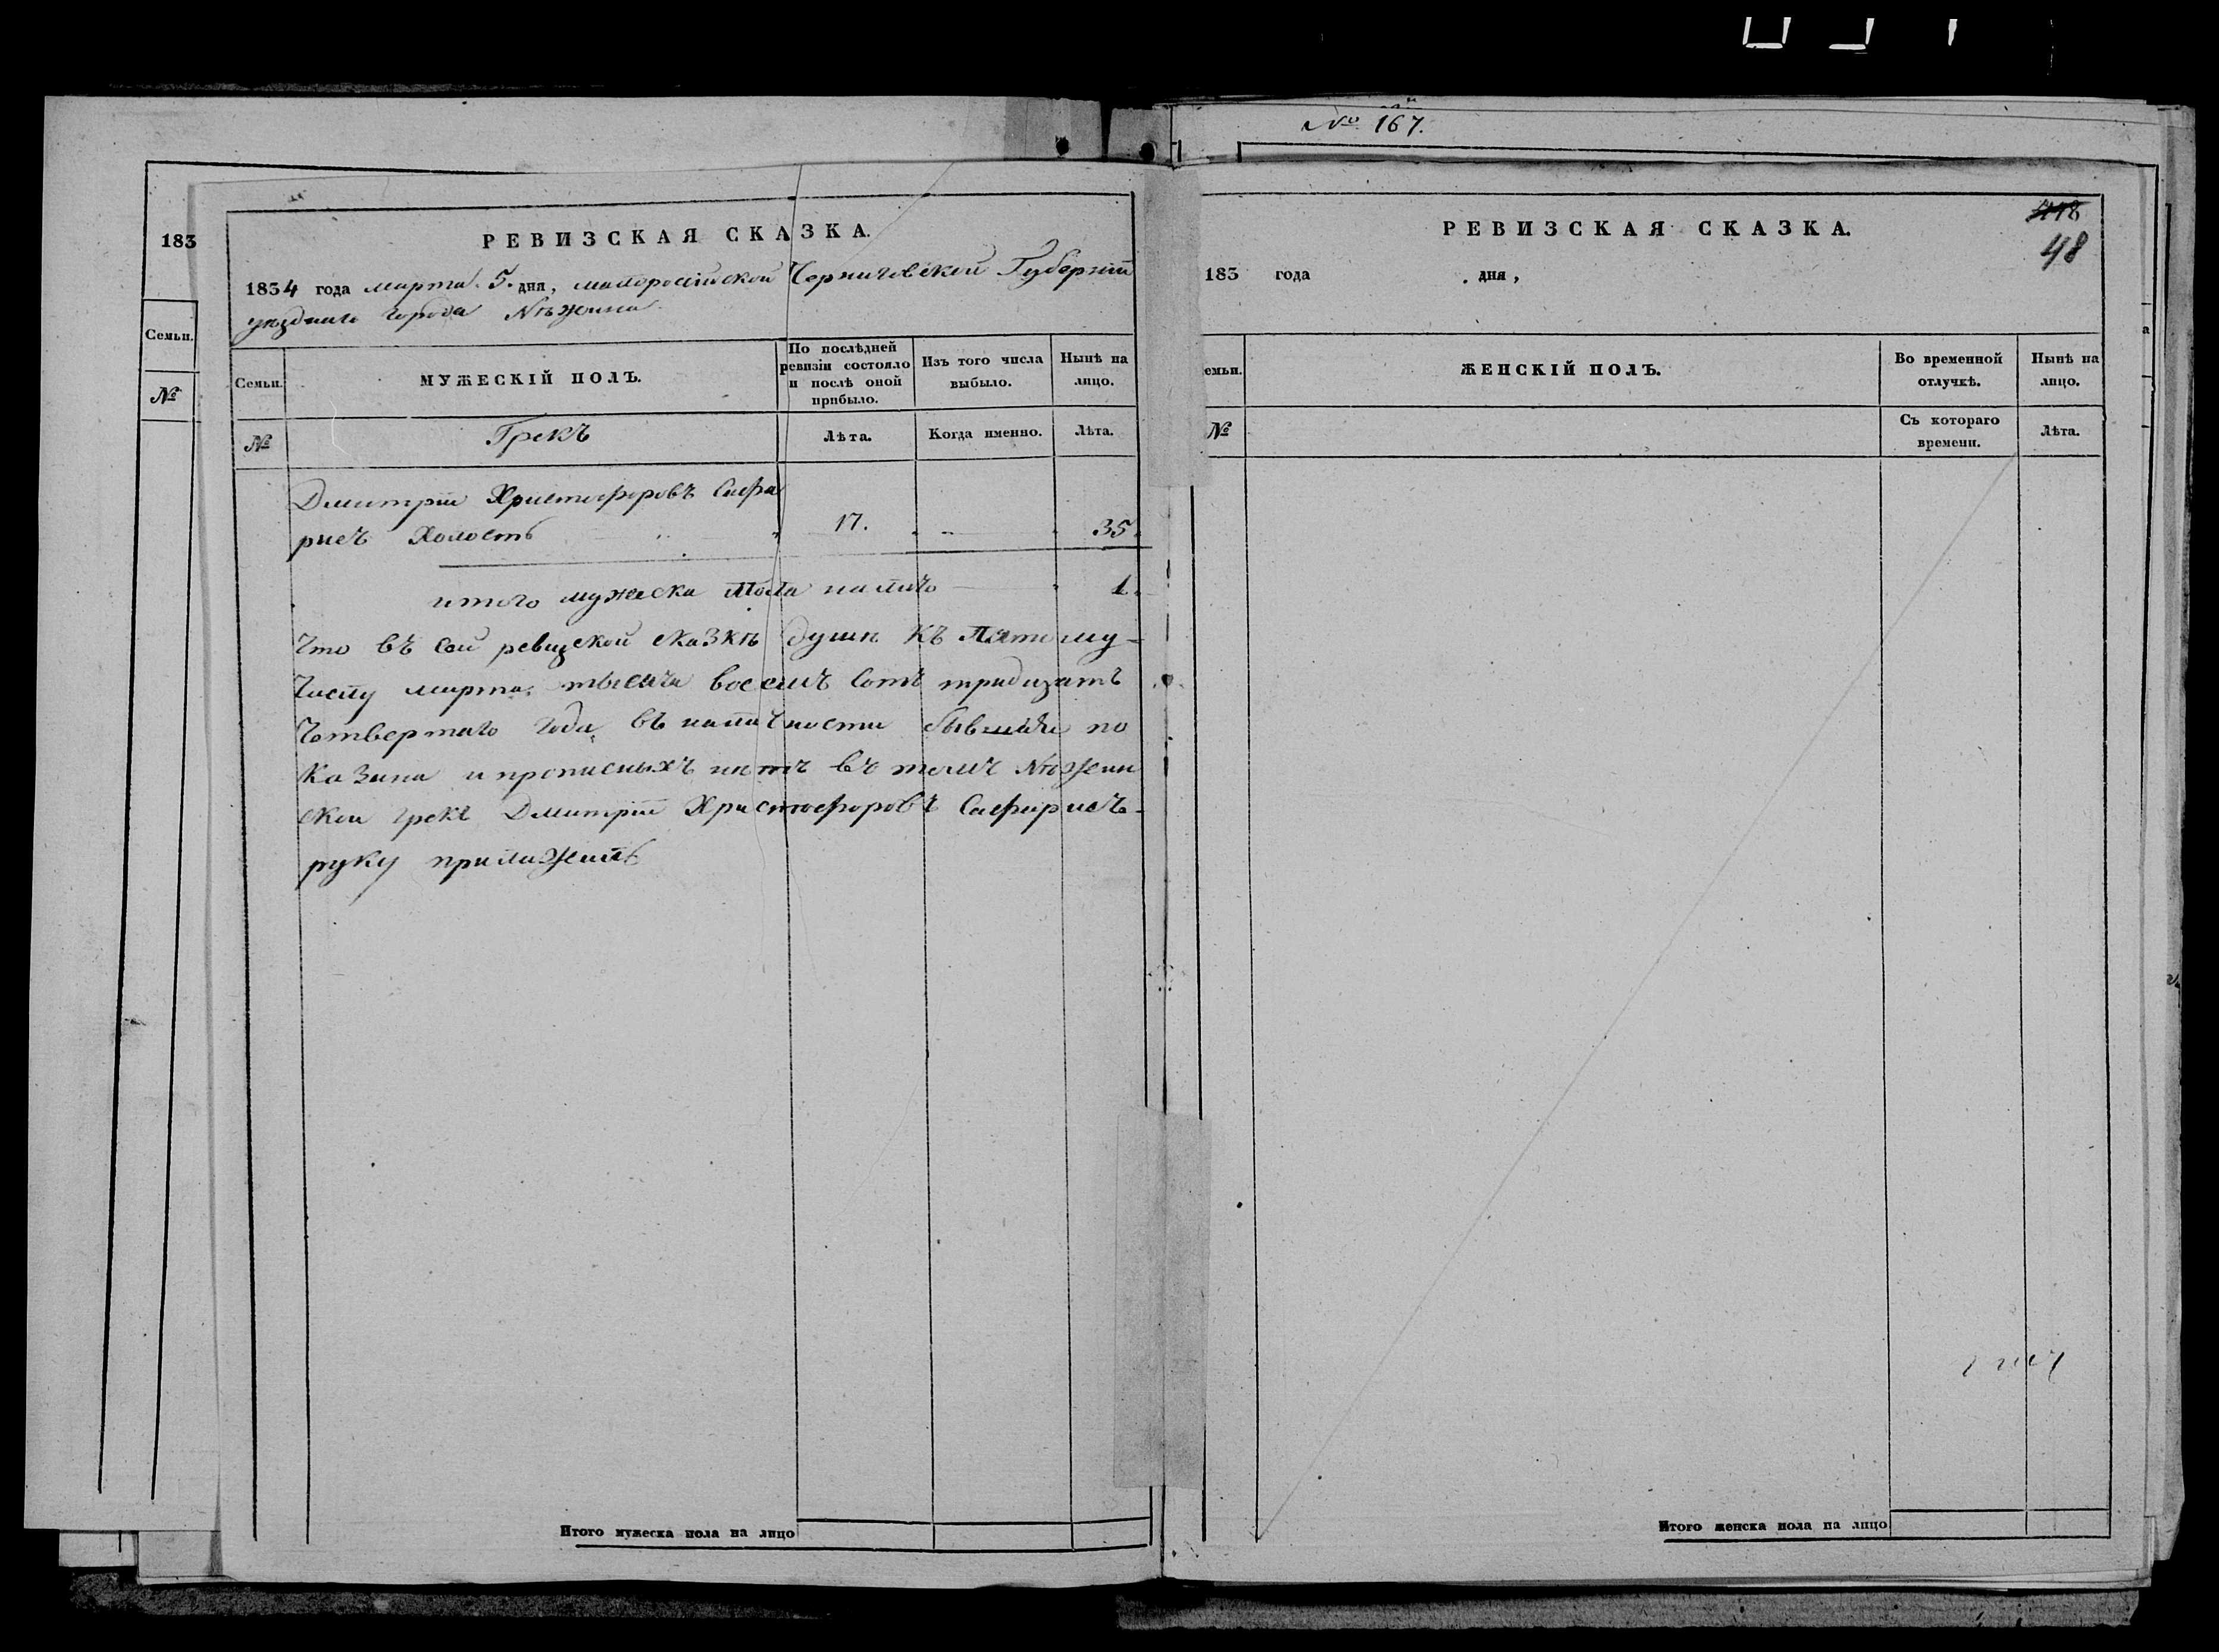 № 167.
183
Семьи.
№
РЕВИЗСКАЯ СКАЗКА.
1834 года марта 5. дня, малоросійской Черниговской Губерніи
уѣзднаго города Нѣжина
Семьи.
МУЖЕСКІЙ ПОЛЪ.
По послѣдней ревизіи состояло и послѣ оной прибыло.
Изъ того числа выбыло.
Нынѣ на лицо.
№
Грекъ
Лѣта.
Когда именно.
Лѣта.
Дмитрій Христофоровъ Сафа
рисъ Холостъ 17. 35.
итого мужеска пола налицо 1.
Что въ сей ревизской сказкѣ души къ Пятому
числу марта тысяча восемъ сотъ тридцать
Четвертаго года въ наличности бывшіе по
казани и прописныхъ нѣтъ въ томъ Нѣжин
ской грекъ Дмитрій Христофоровъ Сафарисъ
руку приложилъ
Итого мужеска пола на лицо
418
48
РЕВИЗСКАЯ СКАЗКА.
183 года . дня ,
емьи.
ЖЕНСКІЙ ПОЛЪ.
Во временной отлучкѣ.
Нынѣ на лицо.
№
Съ котораго времени.
Лѣта.
Итого женска пола на лицо